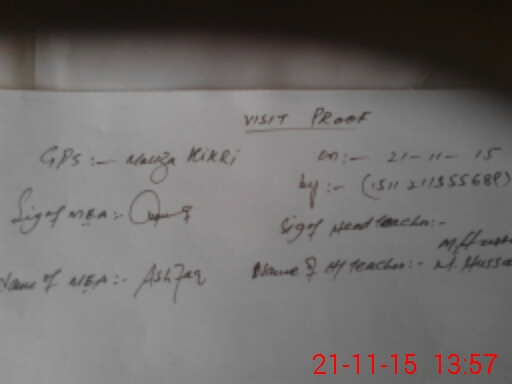 VISIT PROOF
GPS :- Mauza KiKRi on :- 21-11-15
by :- (151121135568P)
Sig of MEA :-
Sig of Head teacher :-
Name of MEA :- Ashfaq
Name of H teacher :- M. Hussa
21-11-15 13:57